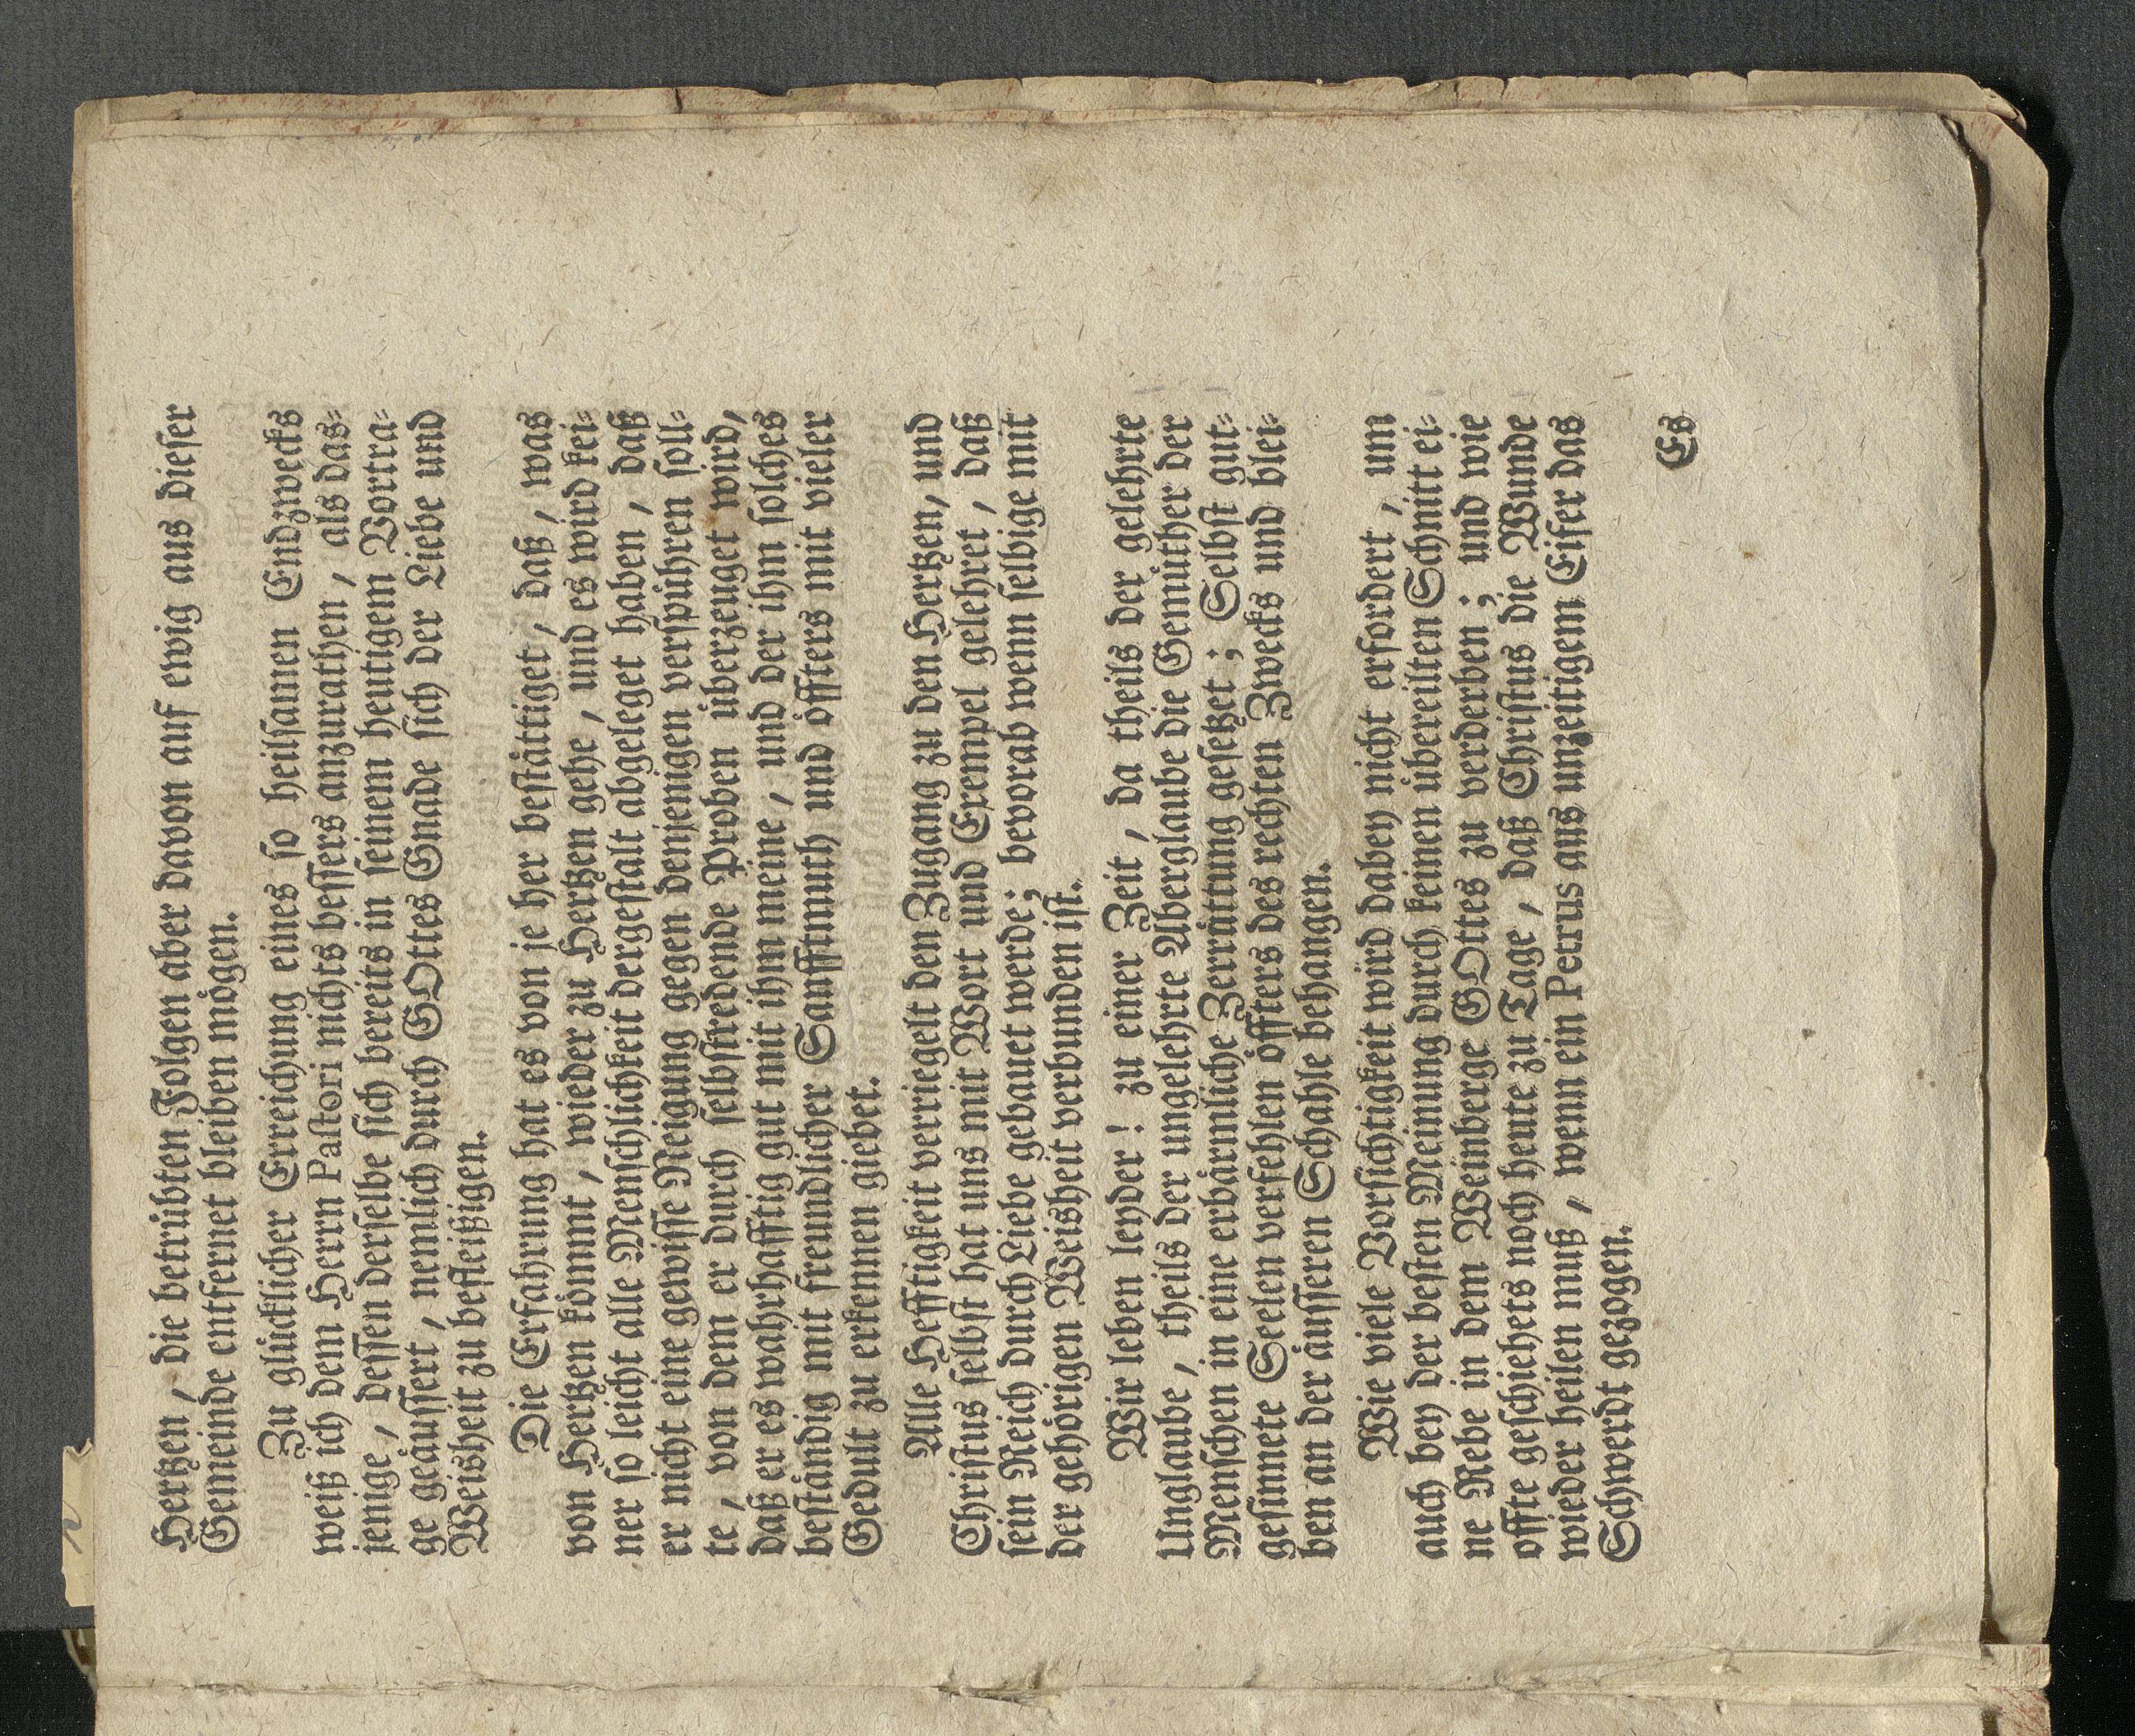 Hertzen, die betrübten Folgen aber davon auf ewig aus dieser
Gemeinde entfernet bleiben mögen.
Zu glücklicher Erreichung eines so heilsamen Endzwecks
weiß ich dem Herrn Pastori nichts bessers anzurathen, als das-
jenige, dessen derselbe sich bereits in seinem heutigem Vortra-
ge geäussert, nemlich durch GOttes Gnade sich der Liebe und
Weisheit zu befleißigen.
Die Erfahrung hat es von je her bestättiget, daß, was
von Hertzen kömmt, wieder zu Hertzen gehe, und es wird kei-
ner so leicht alle Menschlichkeit dergestalt abgeleget haben, daß
er nicht eine gewisse Neigung gegen denjenigen verspühren soll-
te, von dem er durch selbstredende Proben überzeuget wird,
daß er es wahrhafftig gut mit ihm meine, und der ihm solches
beständig mit freundlicher Sanfftmuth und öffters mit vieler
Gedult zu erkennen giebet.
Alle Hefftigkeit verriegelt den Zugang zu den Hertzen, und
Christus selbst hat uns mit Wort und Exempel gelehret, daß
sein Reich durch Liebe gebauet werde; bevorab wenn selbige mit
der gehörigen Weisheit verbunden ist.
Wir leben leyder! zu einer Zeit, da theils der gelehrte
Unglaube, theils der ungelehrte Aberglaube die Gemüther der
Menschen in eine erbärmliche Zerrüttung gesetzet; Selbst gut-
gesinnete Seelen verfehlen öffters des rechten Zwecks und blei-
ben an der äusseren Schahle behangen.
Wie viele Vorsichtigkeit wird dabey nicht erfordert, um
auch bey der besten Meinung durch keinen übereilten Schnitt ei-
ne Rebe in dem Weinberge GOttes zu verderben; und wie
offte geschiehets noch heute zu Tage, daß Christus die Wunde
wieder heilen muß, wenn ein Petrus aus unzeitigem Eifer das
Schwerdt gezogen.
Es